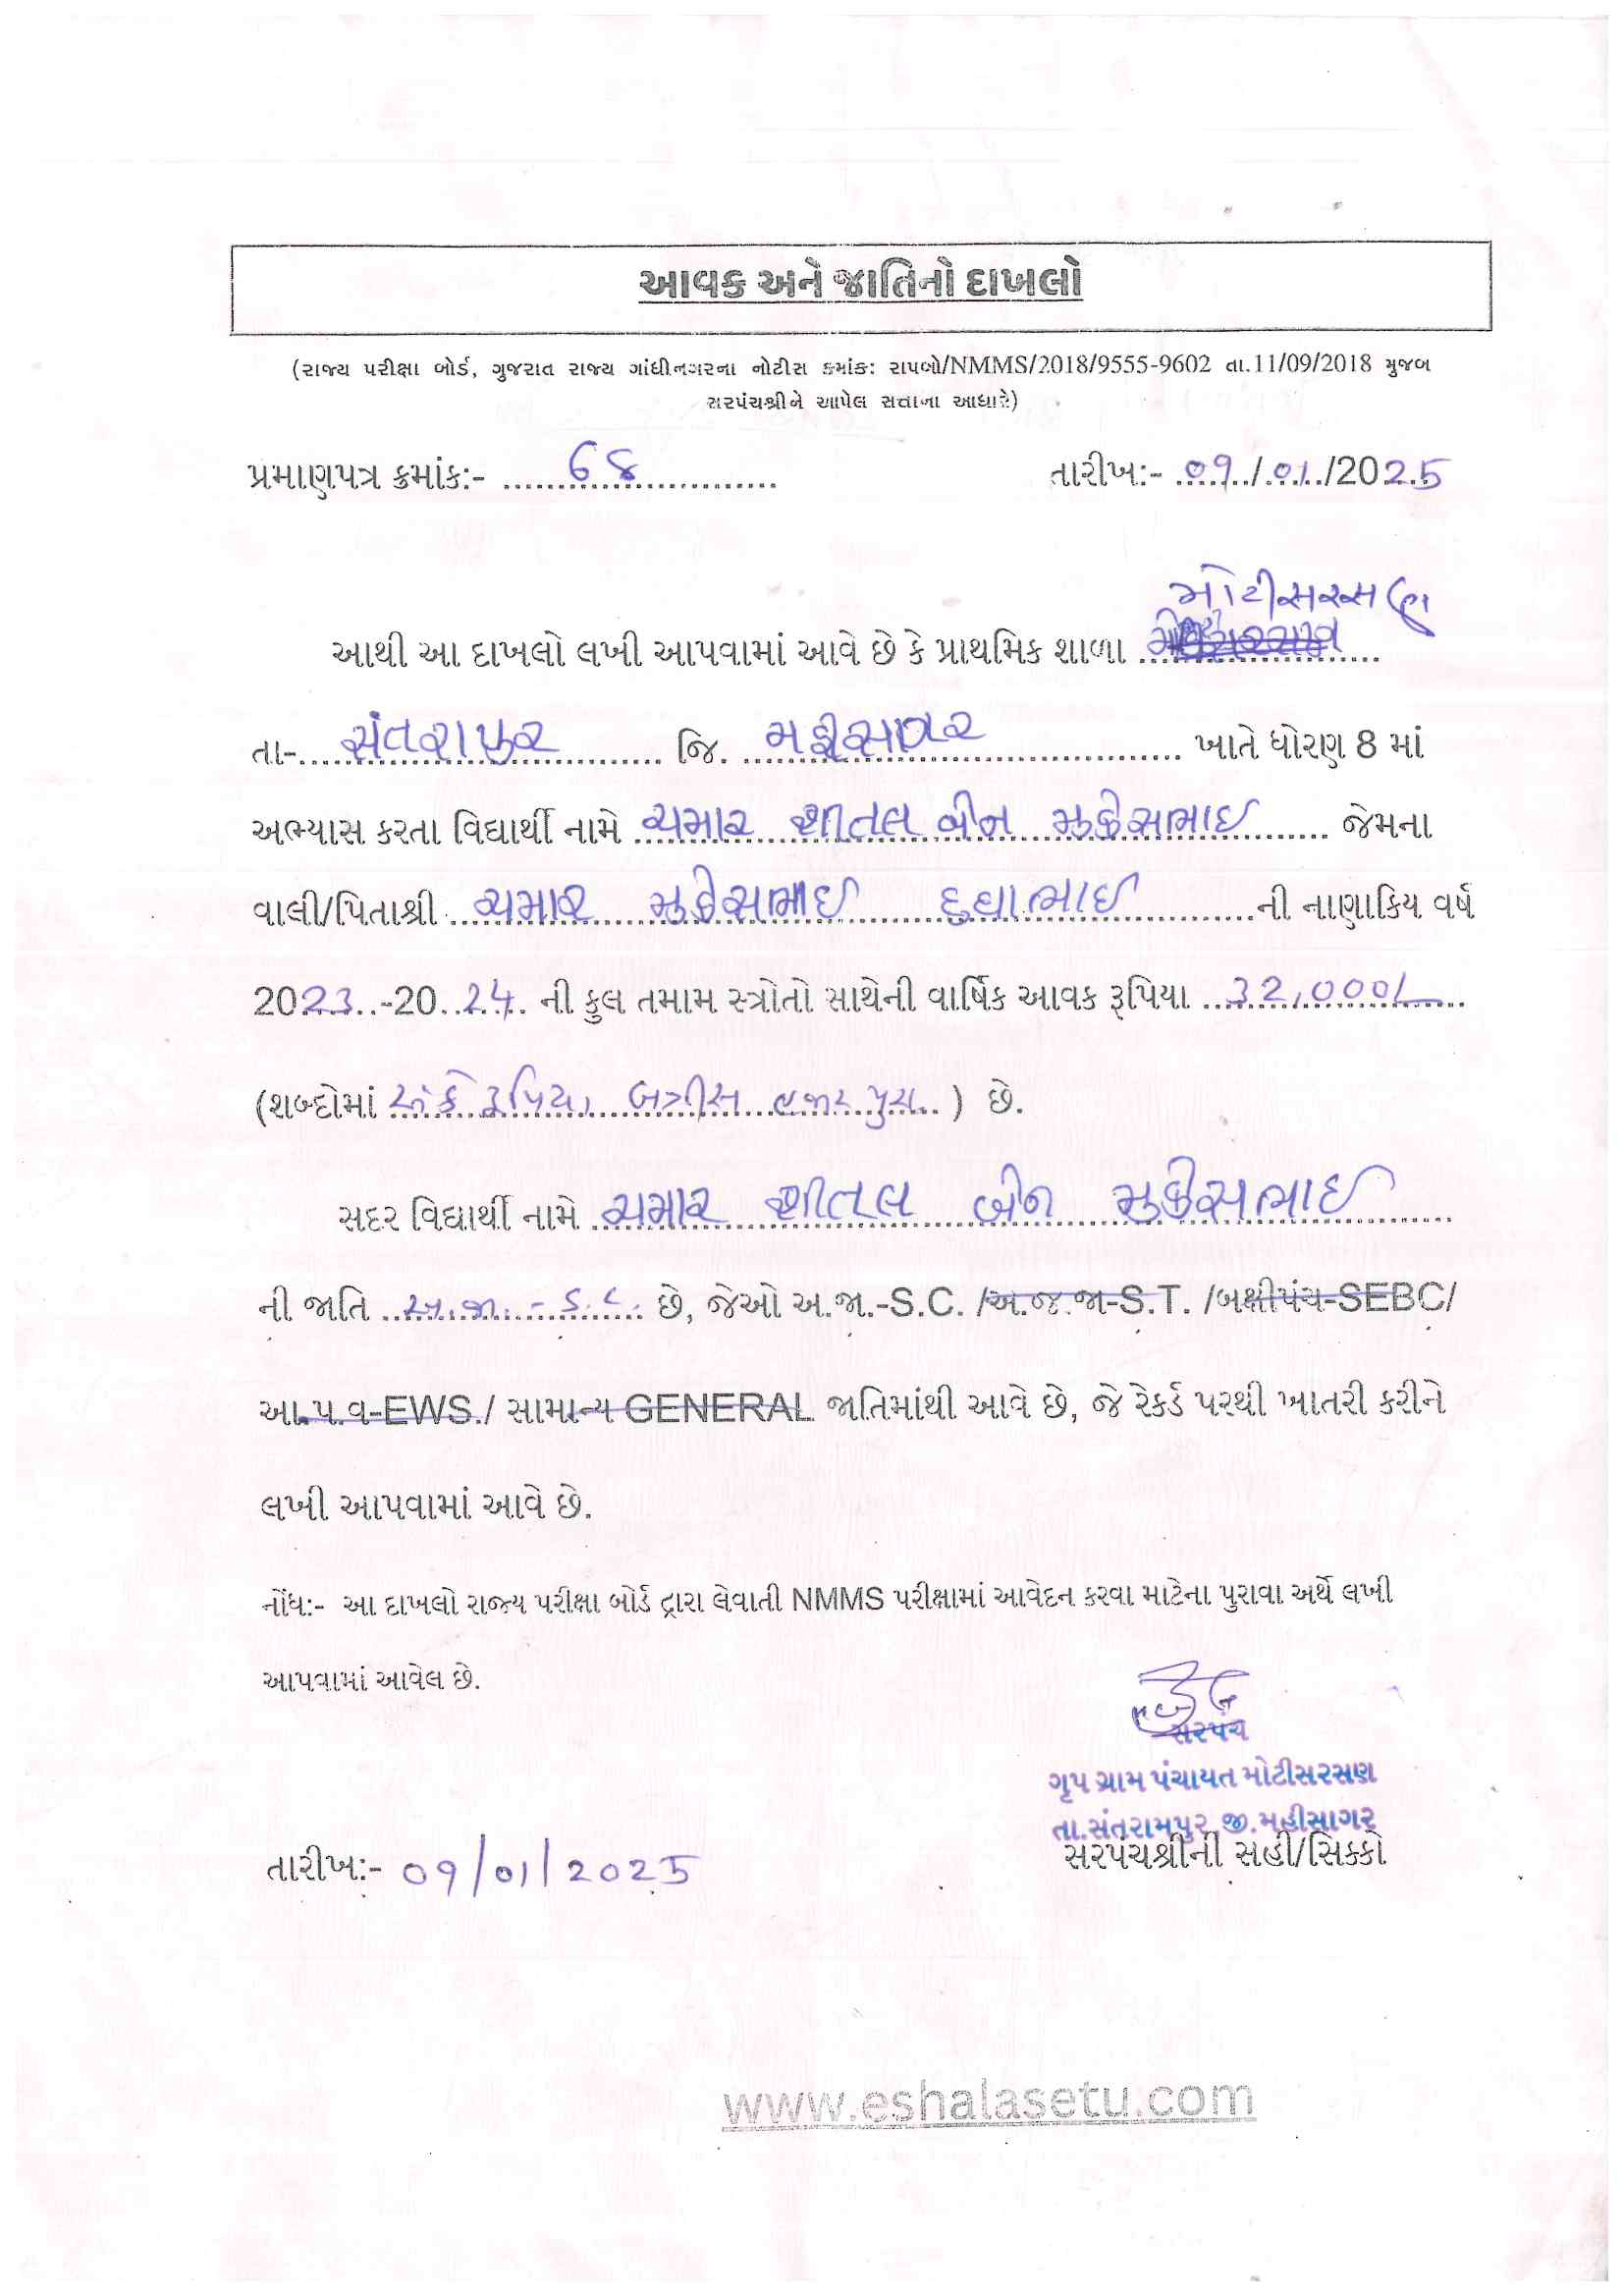 આવક અને જાતિનો દાખલો
(રાજ્ય પરીક્ષા બોર્ડ, ગુજરાત રાજ્ય ગાંધીનગરના નોટીસ ક્રમાંક: રાપબો/NMMS/2018/9555-9602 તા.11/09/2018 મુજબ
સરપંચશ્રીને આપેલ સત્તાના આધારે)
પ્રમાણપત્ર ક્રમાંક:- 68 તારીખ:- 09/01/2025
મોટીસરસણ
આથી આ દાખલો લખી આપવામાં આવે છે કે પ્રાથમિક શાળા
તા-સંતરામપુર જિ. મહીસાગર ખાતે ધોરણ 8 માં
અભ્યાસ કરતા વિદ્યાર્થી નામે ચમાર શીતલ બેન મુકેસભાઈ જેમના
વાલી/પિતાશ્રી ચમાર મુકેસભાઈ દુધાભાઈ ની નાણાકિય વર્ષ
2023-2024 ની કુલ તમામ સ્ત્રોતો સાથેની વાર્ષિક આવક રૂપિયા 32,000/-
(શબ્દોમાં અંકે રૂપિયા બત્રીસ હજાર પુરા) છે.
સદર વિદ્યાર્થી નામે ચમાર શીતલ બેન મુકેસભાઈ
ની જાતિ અ.જા.-S.C. છે, જેઓ અ.જા.-S.C. /અ.જ.જા-S.T. /બક્ષીપંચ-SEBC/
આ.પ.વ-EWS./ સામાન્ય GENERAL જાતિમાંથી આવે છે, જે રેકર્ડ પરથી ખાતરી કરીને
લખી આપવામાં આવે છે.
નોંધ:- આ દાખલો રાજ્ય પરીક્ષા બોર્ડ દ્વારા લેવાતી NMMS પરીક્ષામાં આવેદન કરવા માટેના પુરાવા અર્થે લખી
આપવામાં આવેલ છે.
સરપંચ
ગૃપ ગ્રામ પંચાયત મોટીસરસણ
તા.સંતરામપુર જી.મહીસાગર
સરપંચશ્રીની સહી/સિક્કો
તારીખ:- 09/01/2025
www.eshalasetu.com